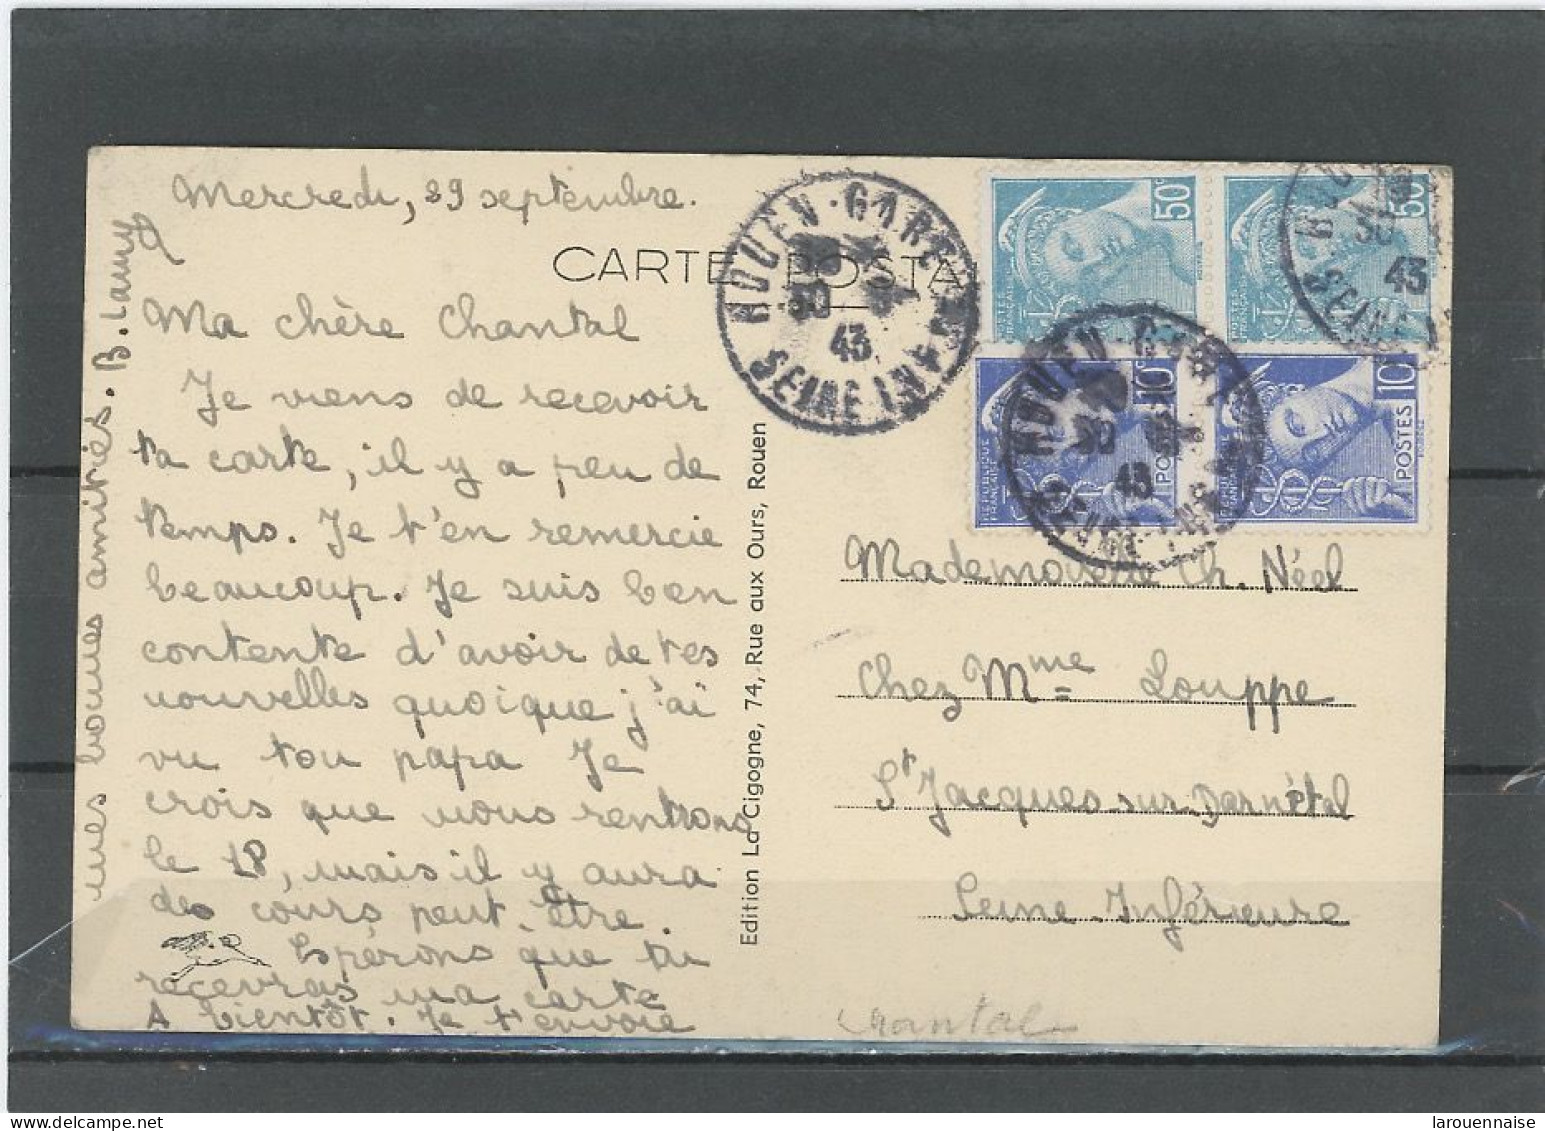 Mercredi, 29 septembre.
CARTE POSTA
Ma chère Chantal
Je viens de recevoir
ta carte, il y a peu de
temps. Je t'en remercie
beaucoup. Je suis bien
contente d'avoir de tes
nouvelles quoique j'ai
vu ton papa Je
crois que nous rentrons
le 18, mais il y aura
des cours peut être.
Espérons que tu
recevras ma carte
A bientôt. Je t'envoie
mes bonnes amitiés. B. Lamy
Edition La Cigogne, 74, Rue aux Ours, Rouen
ROUEN-GARE
30
43
SEINE INF
50c
50c
10c
10c
POSTES
ROUEN-GARE
30
43
SEINE INF
30
43
SEINE
Mademoiselle Ch. Néel
Chez Mme Louppe
St Jacques sur Darnétal
Seine Inférieure
Chantal
larouennaise